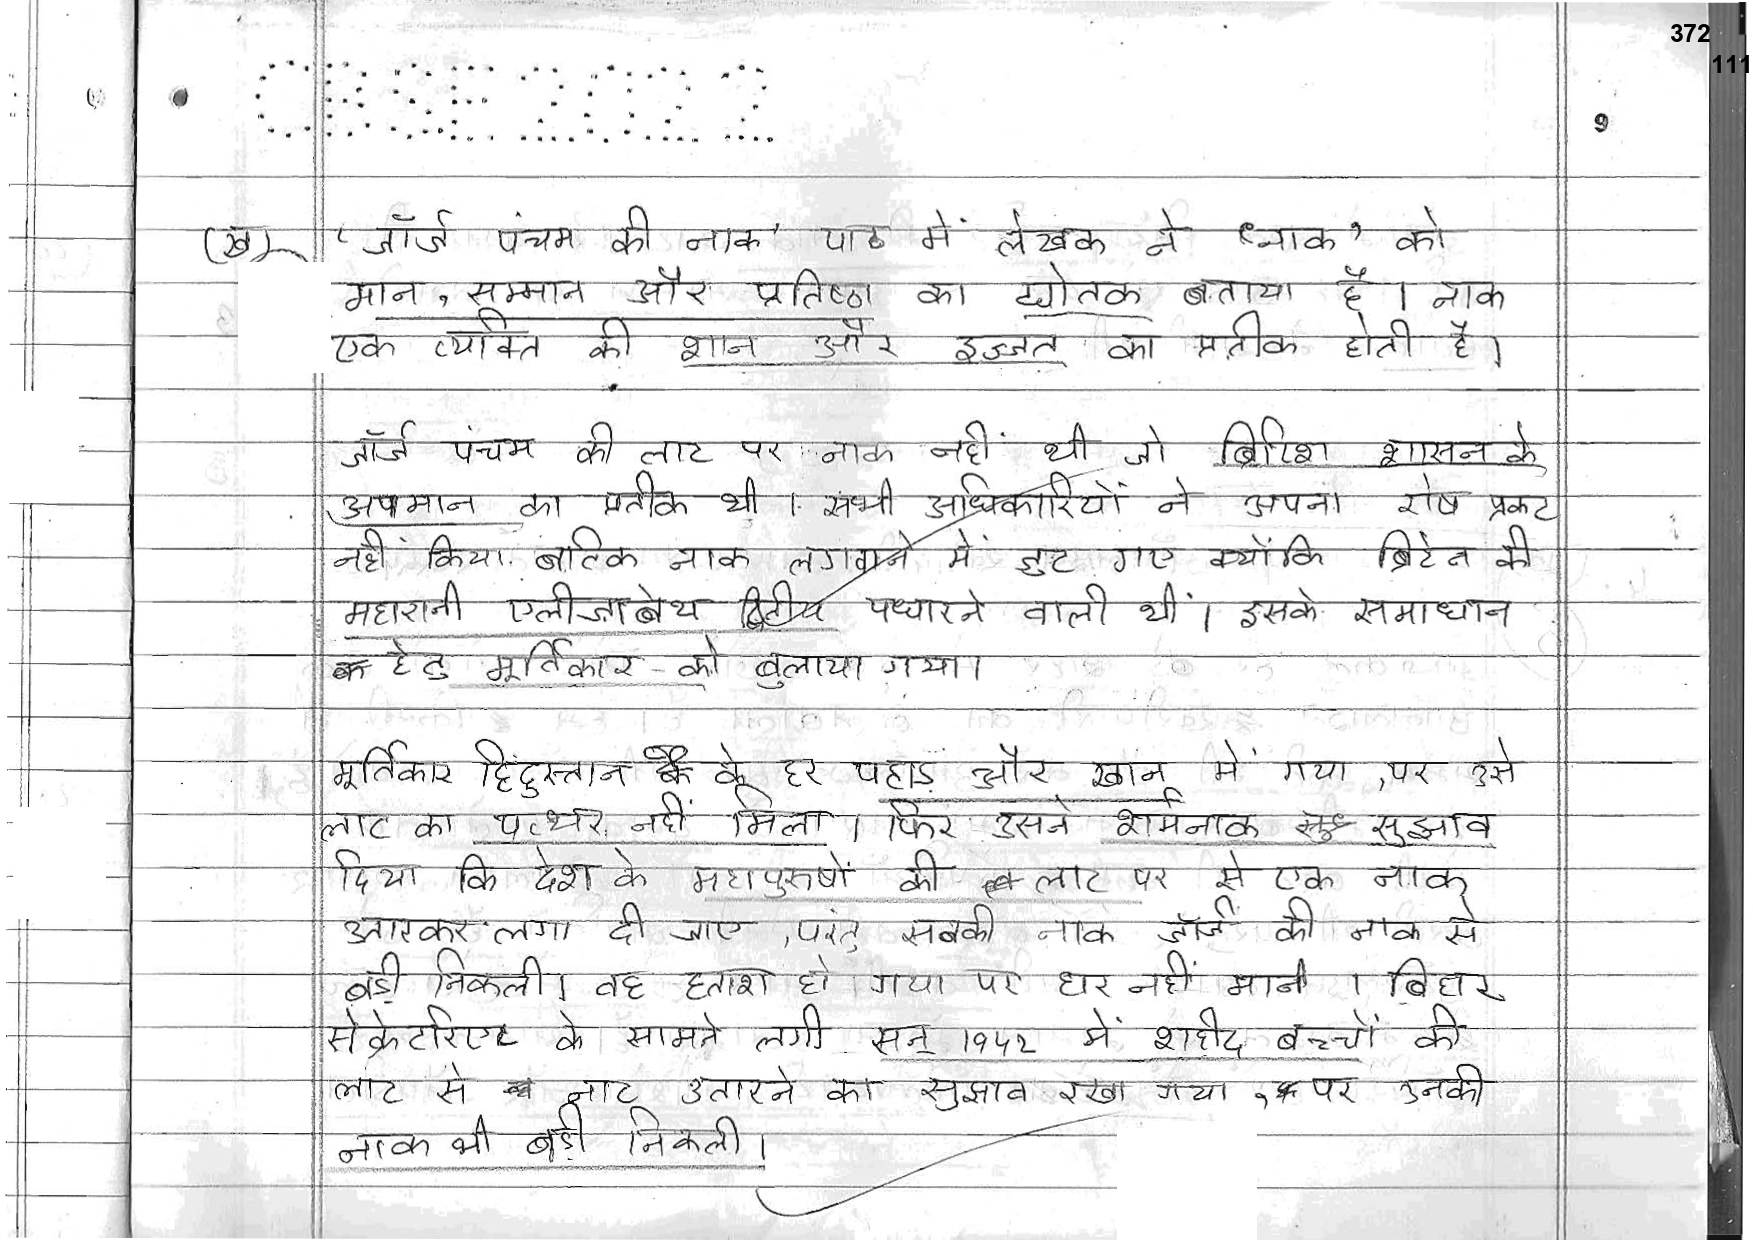 372
111
CBSE 2022
9
(ख) 'जॉर्ज पंचम की नाक' पाठ में लेखक ने 'नाक' को
मान, सम्मान और प्रतिष्ठा का द्योतक बताया है । नाक
एक व्यक्ति की शान और इज्जत का प्रतीक होती है।
जॉर्ज पंचम की लाट पर नाक नहीं थी जो ब्रिटिश शासन के
अपमान का प्रतीक थी । सभी अधिकारियों ने अपना रोष प्रकट
नहीं किया बल्कि नाक लगवाने में जुट गए क्योंकि ब्रिटेन की
महारानी एलीजाबेथ द्वितीय पधारने वाली थीं। इसके समाधान
हेतु मूर्तिकार को बुलाया गया।
मूर्तिकार हिंदुस्तान के हर पहाड़ और खान में गया , पर उसे
लाट का पत्थर नहीं मिला । फिर उसने शर्मनाक सुझाव
दिया कि देश के महापुरुषों की लाट पर से एक नाक
उतारकर लगा दी जाए , परंतु सबकी नाक जॉर्ज की नाक से
बड़ी निकली। वह हताश हो गया पर हार नहीं मानी । बिहार
सेक्रेटरिएट के सामने लगी सन् १९४२ में शहीद बच्चों की
लाट से नाट उतारने का सुझाव रखा गया , पर उनकी
नाक भी बड़ी निकली।